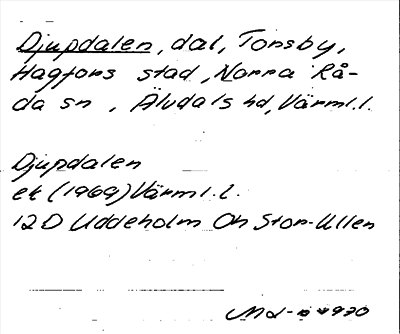 Djupdalen, dal, Torsby,
Hagfors stad, Norra Rå-
da sn, Älvdals hd, Värml.l.
Djupdalen
ek (1969) Värml.l.
12D Uddeholm Öh Stor-Ullen